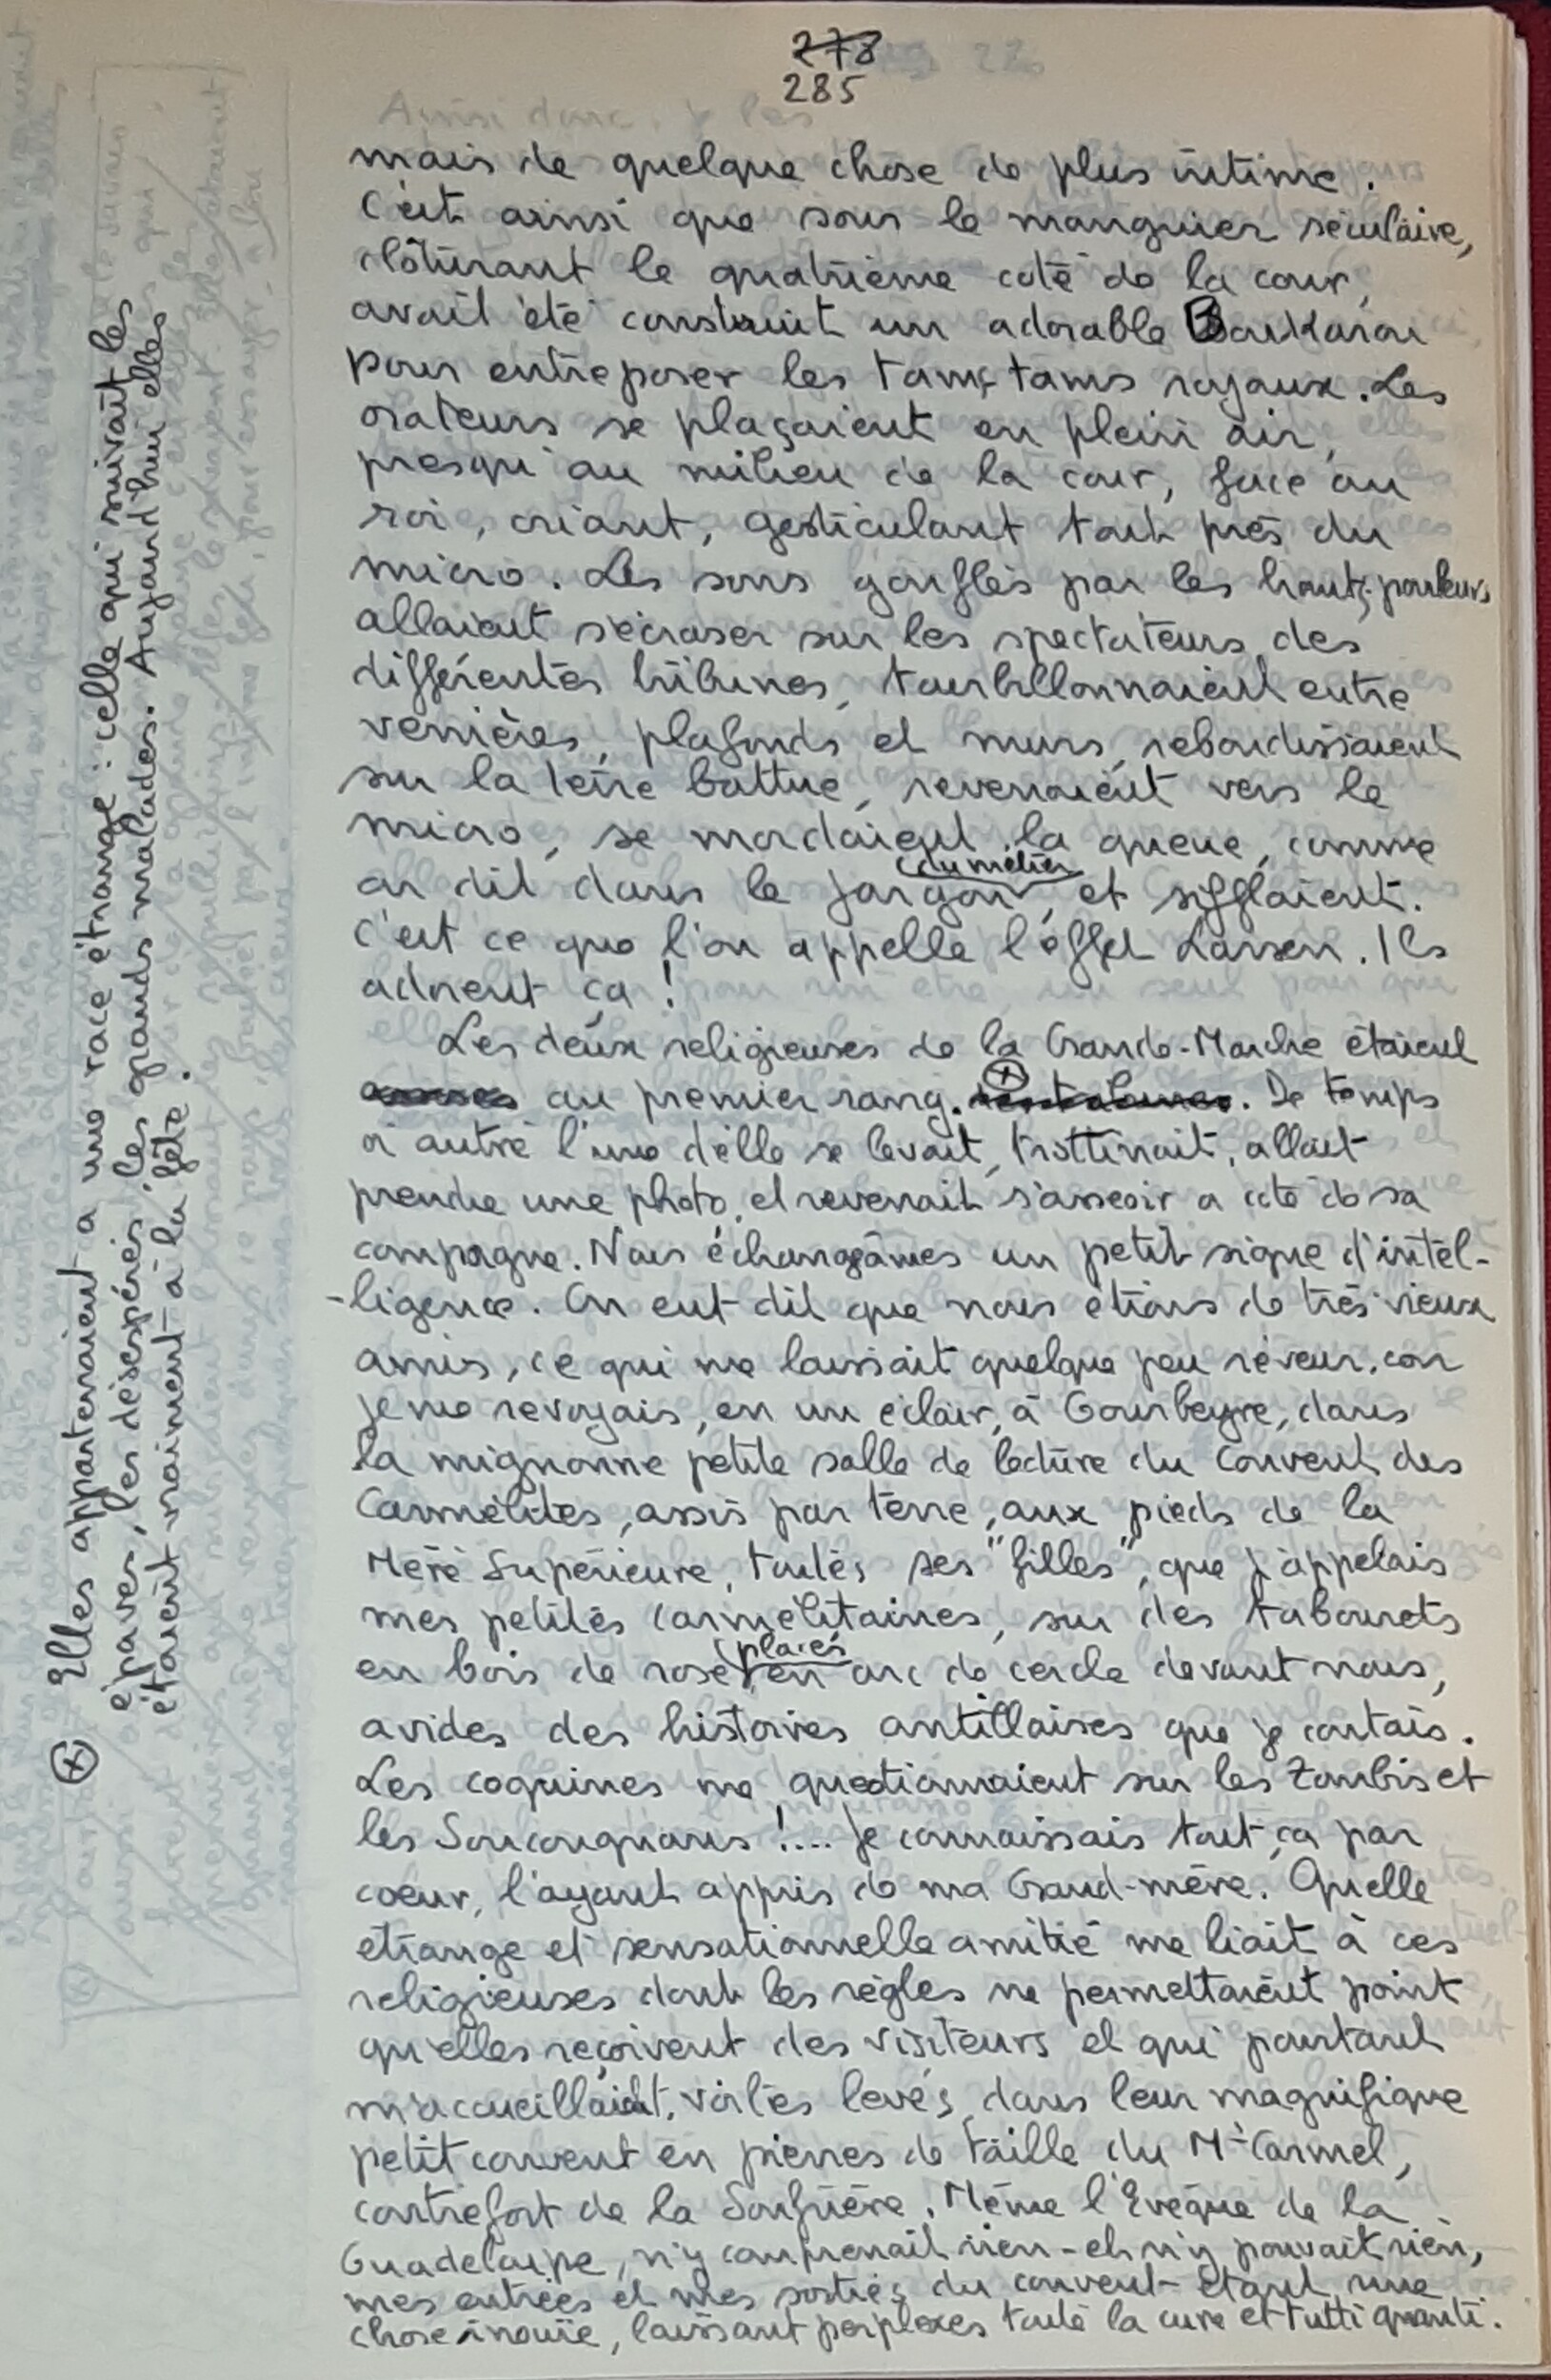 278
285
mais de quelque chose de plus intime.
C'est ainsi que sous le manguier séculaire,
clôturant le quatrième coté de la cour,
avait été construit un adorable Boukarou
pour entreposer les tams-tams royaux. Les
orateurs se plaçaient en plein air,
presqu'au milieu de la cour, face au
roi, criant, gesticulant tout près du
micro. Les sons gonflés par les hauts-parleurs
allaient s'écraser sur les spectateurs des
différentes tribunes, tourbillonnaient entre
verrières, plafonds et murs, rebondissaient
sur la terre battue, revenaient vers le
micro, se mordaient la queue, comme
on dit dans le jargon du métier, et sifflaient.
C'est ce que l'on appelle l'effet Larsen. Ils
adorent ça !
Les deux religieuses de la Grande-Marche étaient
au premier rang. ⊗ De temps
à autre l'une d'elle se levait, trottinait, allait
prendre une photo, et revenait s'asseoir a coté de sa
compagne. Nous échangeâmes un petit signe d'intel-
-ligence. On eut dit que nous étions de très vieux
amis, ce qui me laissait quelque peu rêveur, car
je me revoyais, en un éclair, à Gourbeyre, dans
la mignonne petite salle de lecture du Couvent des
Carmélites, assis par terre, aux pieds de la
Mère Supérieure, toutes ses "filles", que j'appelais
mes petites carmélitaines, sur des tabourets
en bois de rose placés en arc de cercle devant nous,
avides des histoires antillaises que je contais.
Les coquines me questionnaient sur les Zombis et
les Soucougnans !.... Je connaissais tout ça par
coeur, l'ayant appris de ma Grand-mère. Quelle
étrange et sensationnelle amitié me liait à ces
religieuses dont les règles ne permettaient point
qu'elles reçoivent des visiteurs et qui pourtant
m'accueillaient, voiles levés, dans leur magnifique
petit couvent en pierres de taille du Mt Carmel,
contrefort de la Soufrière. Même l'Evêque de la
Guadeloupe, n'y comprenait rien - et n'y pouvait rien,
mes entrées et mes sorties du couvent étant une
chose inouïe, laissant perplexes toute la cure et tutti quanti.
⊗ Elles appartenaient a une race étrange : celle qui suivait les
épaves, les désespérés, les grands malades. Aujourd'hui elles
étaient vraiment à la fête.